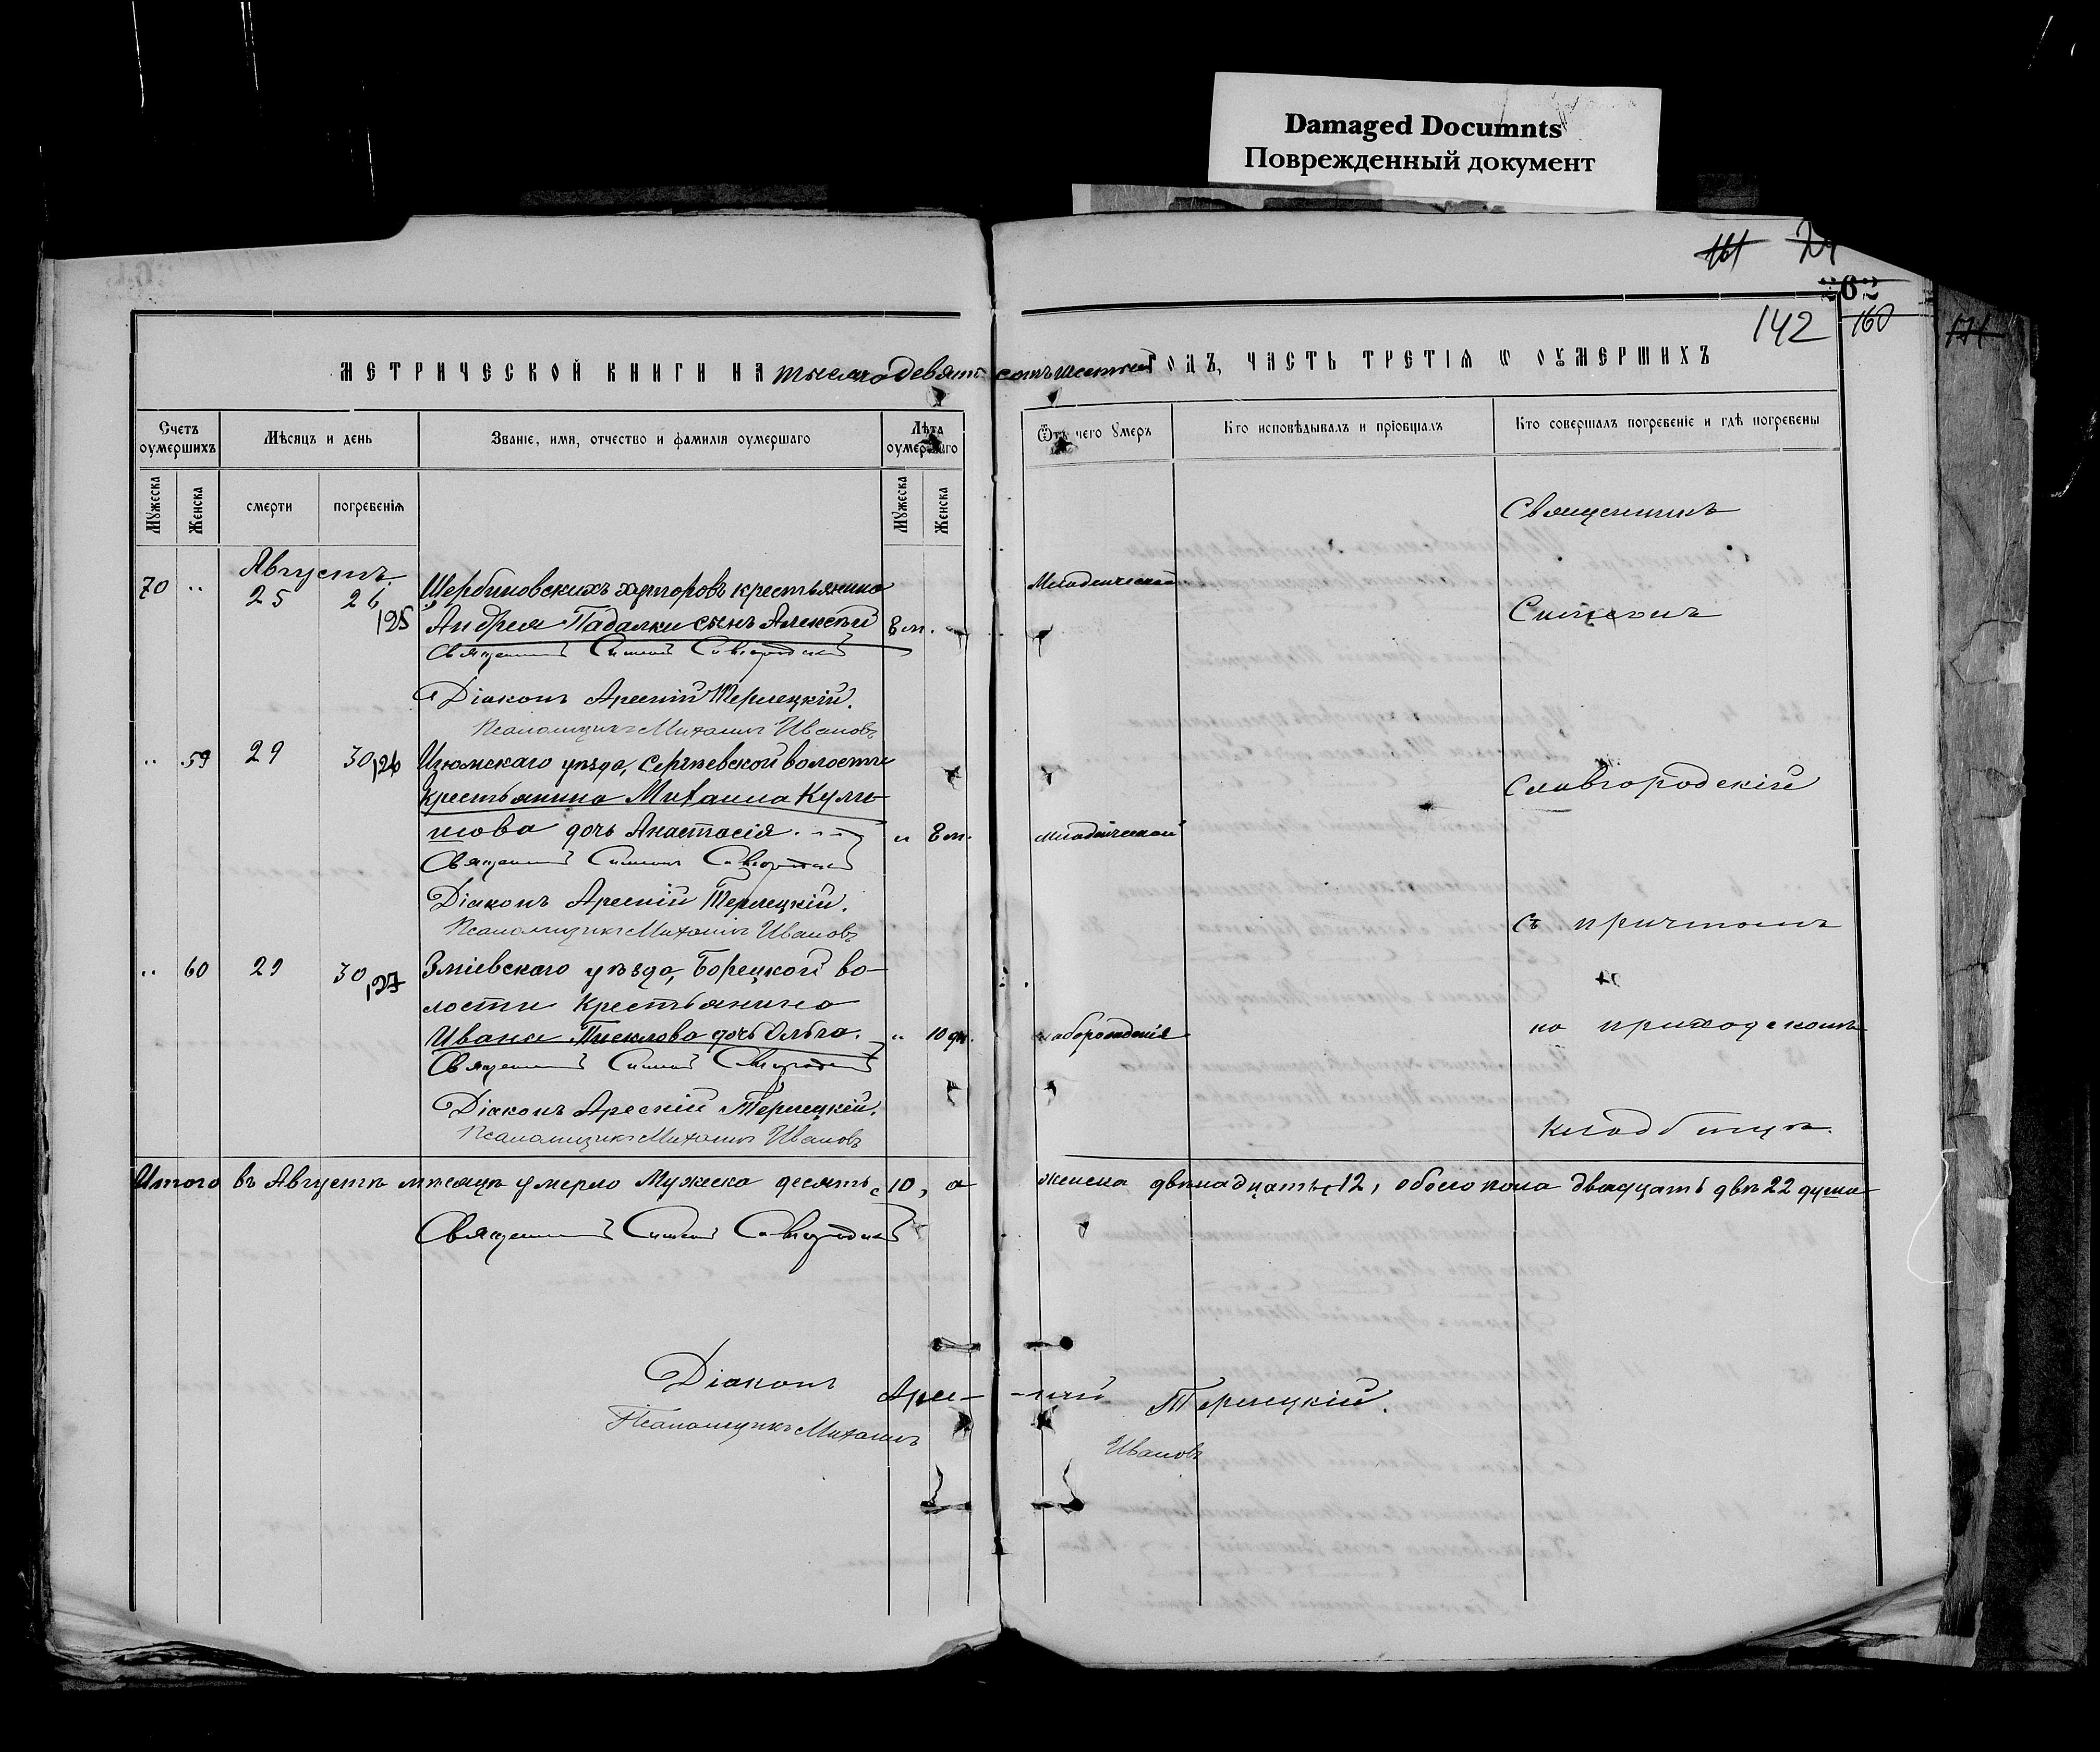 Damaged Documnts
Поврежденный документ
161
262
142
160
171
МЕТРИЧЕСКОЙ КНИГИ НА тысяча девять сотъ шестый ГОДЪ, ЧАСТЬ ТРЕТІЯ Ѡ ОУМЕРШИХЪ
Счетъ оумершихъ
Мѣсяцъ и день
Званіе, имя, отчество и фамилія оумершаго
Лѣта оумершаго
Ѿ чего Умеръ
Кто исповѣдывалъ и пріобщалъ
Кто совершалъ погребеніе и гдѣ погребены
Мужеска
Женска
смерти
погребенія
Мужеска
Женска
Священникъ
Августъ.
70 " 25 26 Щербиновскихъ хуторовъ крестьянина Младенческой
125 Андрея Падалки сынъ Алексѣй 8 м. Симеонъ
Священникъ Симеонъ Славгородскій
Діаконъ Арсеній Терлецкій.
Псаломщикъ Михаилъ Ивановъ
" 59 29 30 126 Изюмскаго уѣзда, Сергѣевской волости
крестьянина Михаила Кули- Славгородскій
шова дочь Анастасія. " 8 м. младенческой
Священникъ Симеонъ Славгородскій
Діаконъ Арсеній Терлецкій.
Псаломщикъ Михаилъ Ивановъ съ причтомъ
" 60 29 30 127 Зміевскаго уѣзда, Борецкой во-
лости крестьянина
Ивана дочь Ольга. " 10 дн. слаборожденія на приходскомъ
Священникъ Симеонъ Славгородскій
Діаконъ Арсеній Терлецкій.
Псаломщикъ Михаилъ Ивановъ кладбищѣ.
Итого въ Августѣ мѣсяцѣ умерло Мужеска десять 10, а женска двѣнадцать 12, обоего пола двадцать двѣ 22 души
Священникъ Симеонъ Славгородскій
Діаконъ Арсе-ній Терлецкій.
Псаломщикъ Михаилъ Ивановъ